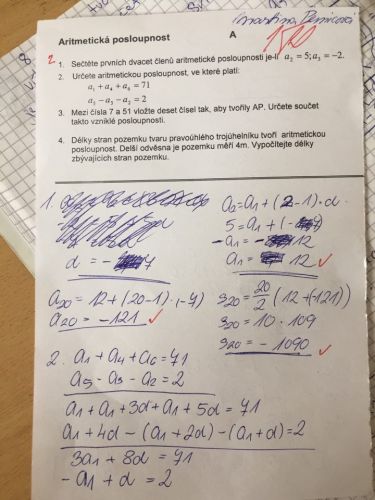 Aritmetická posloupnost A
2 1. Sečtěte prvních dvacet členů aritmetické posloupnosti je-li a₂ = 5; a₃ = −2.
2. Určete aritmetickou posloupnost, ve které platí:
a₁ + a₄ + a₆ = 71
a₅ − a₃ − a₂ = 2
3. Mezi čísla 7 a 51 vložte deset čísel tak, aby tvořily AP. Určete součet
takto vzniklé posloupnosti.
4. Délky stran pozemku tvaru pravoúhlého trojúhelníku tvoří aritmetickou
posloupnost. Delší odvěsna je pozemku měří 4m. Vypočítejte délky
zbývajících stran pozemku.
1.
d = − 7
a₂ = a₁ + (2−1)·d
5 = a₁ + (−7)
−a₁ = −12
a₁ = 12
a₂₀ = 12 + (20−1)·(−7)
a₂₀ = −121
s₂₀ = 20/2 (12 + (−121))
s₂₀ = 10 · 109
s₂₀ = − 1090
2. a₁ + a₄ + a₆ = 71
a₅ − a₃ − a₂ = 2
a₁ + a₁ + 3d + a₁ + 5d = 71
a₁ + 4d − (a₁ + 2d) − (a₁ + d) = 2
3a₁ + 8d = 71
− a₁ + d = 2